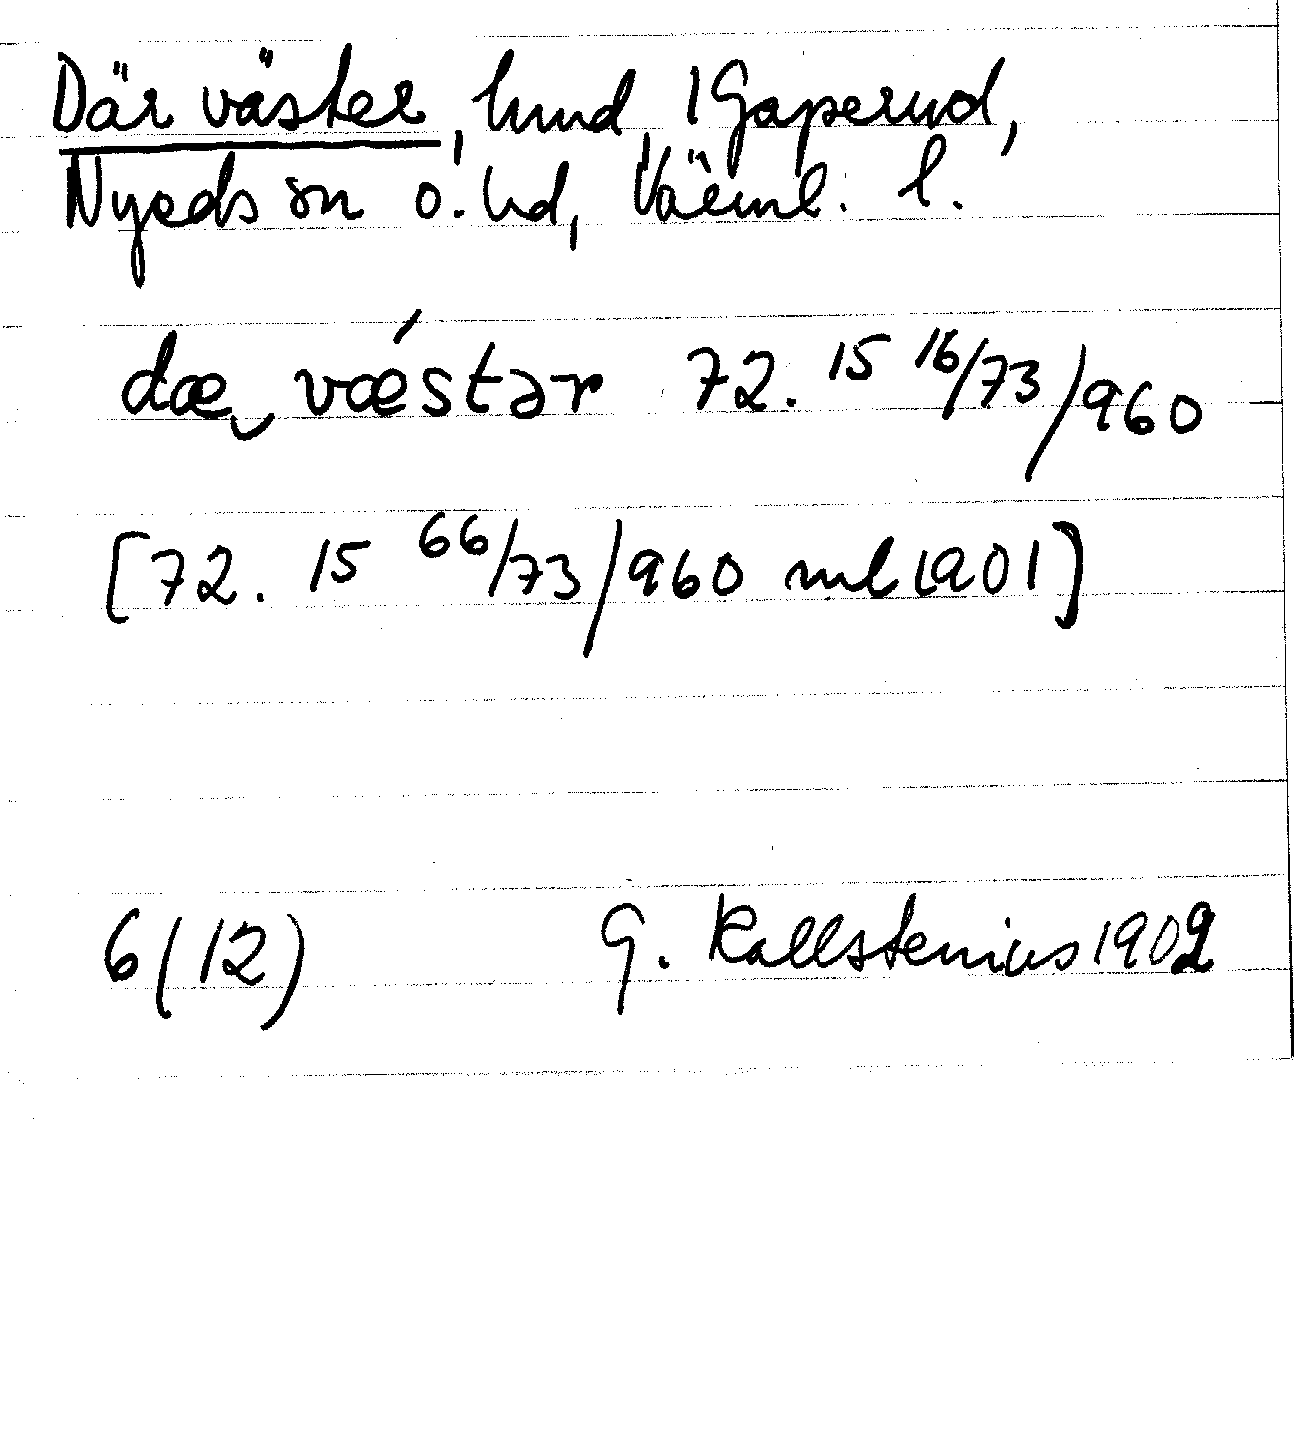 Där väster, hmd, 1 Gaperud,
Nyeds sn o. hd, Värml. l.
dæ vǽstər 72. 15 16/73/960
[72. 15 66/73/960 ml 1901]
6(12) G. Kallstenius 1902